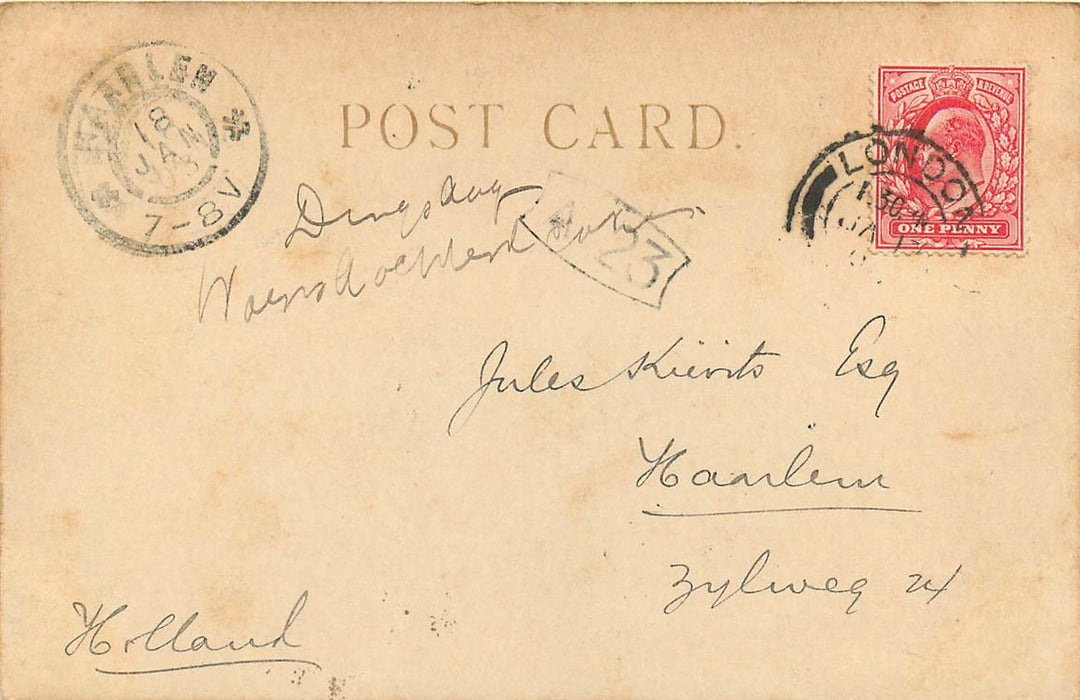 HAARLEM
18
JAN
03
7-8V
POST CARD.
POSTAGE & REVENUE
ONE PENNY
LONDON
1.30 PM
JA 17
23
Dingsdag
Jules Kievits Esq
Haarlem
Zylweg 24
Holland